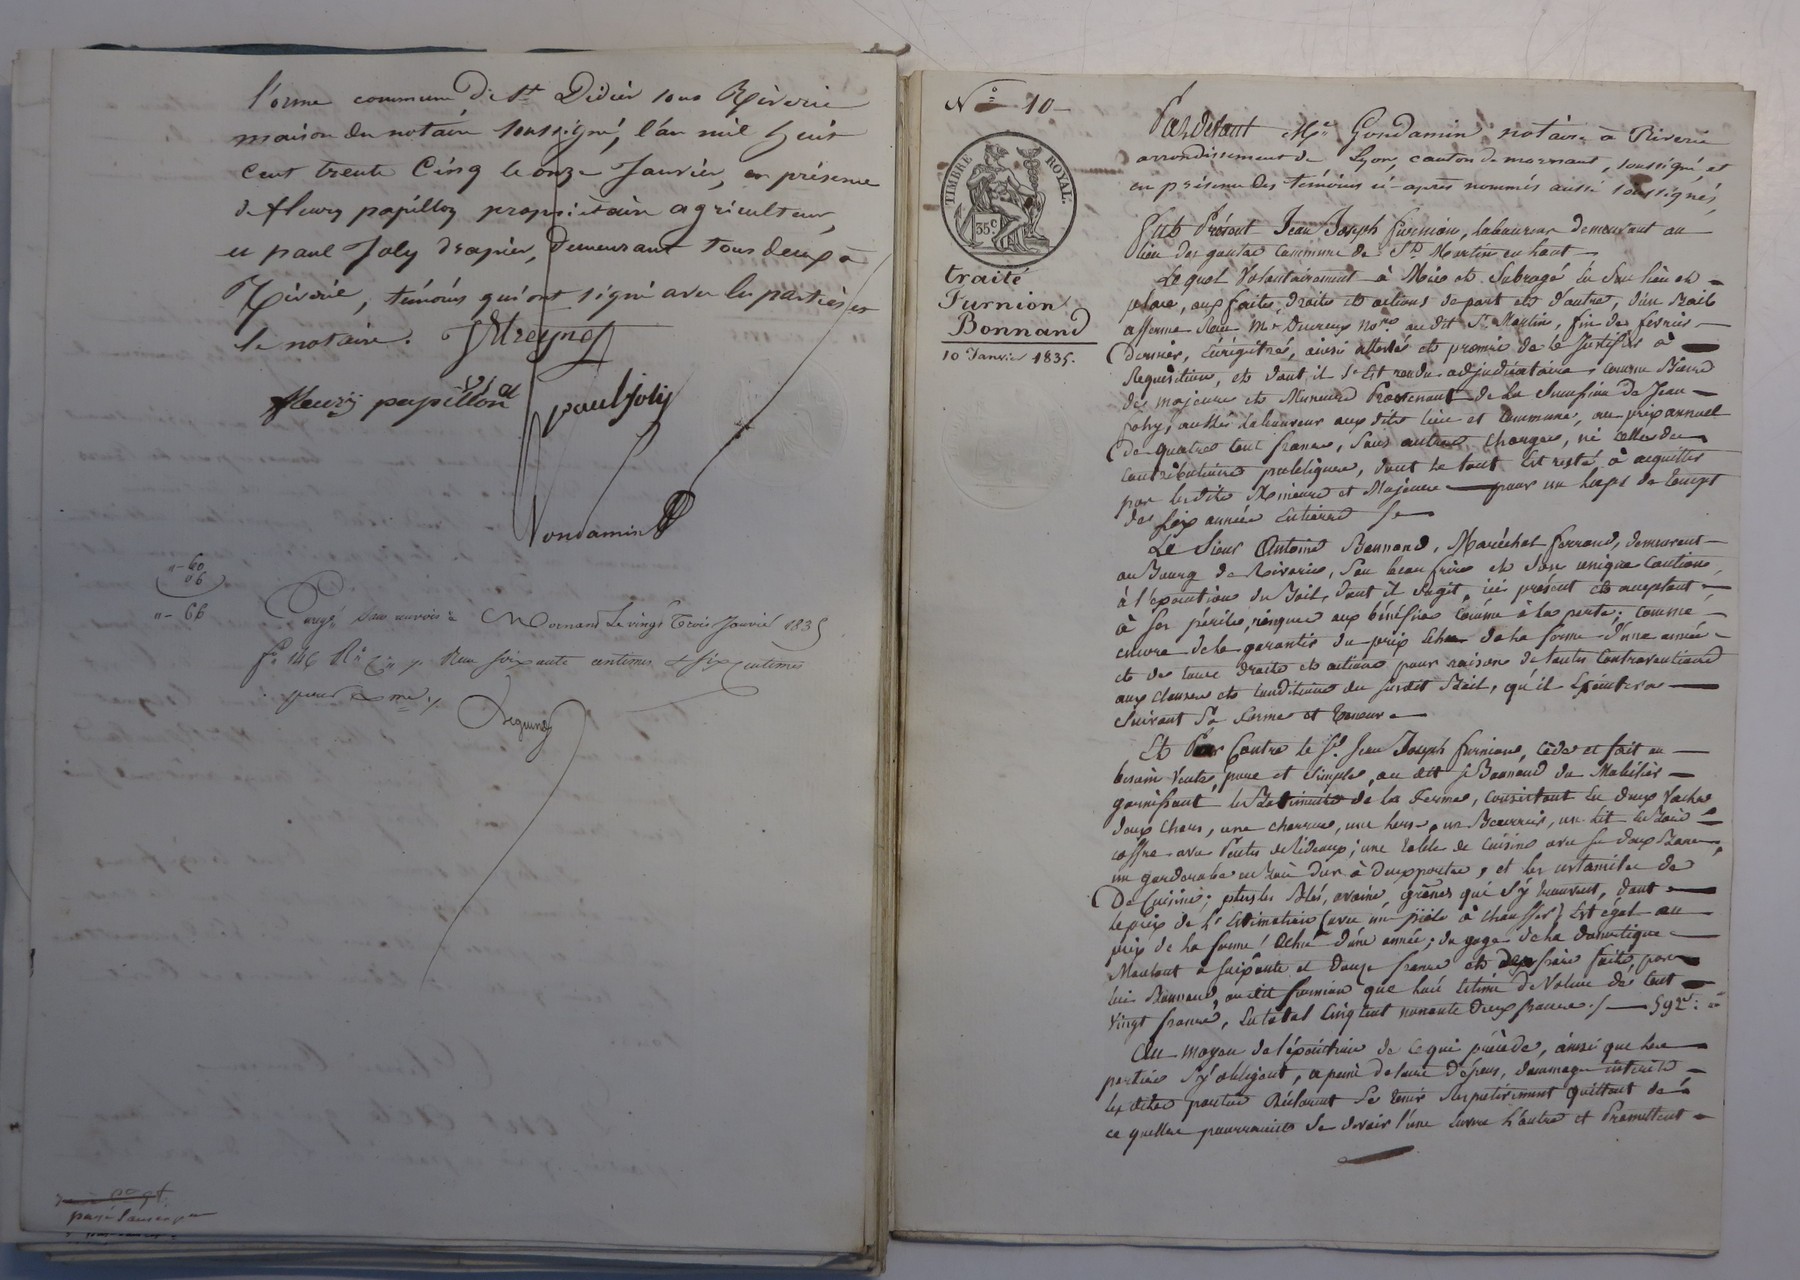 l'orme commune de St Didier sous Riverie
maison du notaire soussigné, l'an mil huit
cent trente cinq le onze Janvier, en présence
de fleury papillon propriétaire agriculteur,
et paul Joly drapier, demeurant tous deux à
Riverie, témoins qui ont signé avec les parties et
le notaire.
fleury papillon
paul joly
Gondamin
"- 60
06
"- 66
sans renvoi = Mornand Le vingt trois Janvier 1835
fo 146 Ro Reçu soixante centimes & six centimes
pour
No 10
TIMBRE ROYAL.
35c
traité
Furnion
Bonnand
10 Janvier 1835.
Pardevant Me Gondamin notaire à Riverie
arrondissement de Lyon, canton de mornant, soussigné, et
en présence des témoins ci-après nommés aussi soussignés,
Fut Présent Jean Joseph furnion, laboureur demeurant au
lieu des commune de St Martin en haut
Lequel volontairement à Mis et Subrogé en Son lieu et
place, aux faits, droits et actions de part et d'autre, d'un Bail
afferme Reçu Mr Ducreux nore au dit St Martin, fin de fevrier
dernier, Enrégistré, ainsi attesté et promis de le Justifier à
Requisition, et dont il s'est rendu adjudicataire, comme Biens
de majeurs et Mineurs Provenant de la de Jean
laboureur aux dits lieu et commune, au prix annuel
de quatre cent francs, Sans autres charges, ni celles des
contributions publiques, dont le tout Est resté à acquitter
par les dits Mineurs et Majeurs pour un laps de temps
de Six années Entieres
Le Sieur Antoine Bonnand, Maréchal ferrand, demeurant
au Bourg de Riverie, Son beau frère et Son unique Caution,
à l'exécution du Bail dont il s'agit, ici présent et acceptant
à Ses périls, risques aux bénéfice comme à la perte; comme
encore de la garantie du prix Echu de la ferme d'une année
et de tous droits et actions pour raison de toutes Contraventions
aux clauses et conditions du susdit Bail, qu'il Exécutera
Suivant Sa forme et teneur
Et Par Contre le Sr Jean Joseph furnion, Cède et fait au
besoin Vente, pure et simple, au dit Sr Bonnand du Mobilier
garnissant les Batiments de la Ferme, consistant En deux Vaches
deux chars, une charrue, une herse, un lit en Bois
coffre avec Pentes de Rideaux; une table de cuisine avec Ses deux Bancs,
un garderobe en bois dur à deux portes, et les ustensiles de
De Cuisine; plus les Blés, avoine, grains qui s'y trouvent, dont
le prix de l'Estimation (avec un poële à chauffer) Est égal au
prix de la ferme Echue d'une année; du gage de la domestique
Montant à soixante et douze francs et des frais faits par
lui Bonnand, au dit furnion que lui Estime de Valeur de Cent
Vingt francs, En total Cinq Cent nonante Deux francs ./. 592 "
Au moyen de l'exécution de ce qui précède, ainsi que les
parties s'y obligent, à peine de tous dépens, dommages intérêts
les dites parties Déclarent Se tenir Respectivement Quittant de
ce quelles pourraient Se devoir l'une Envers L'autre et Promettent